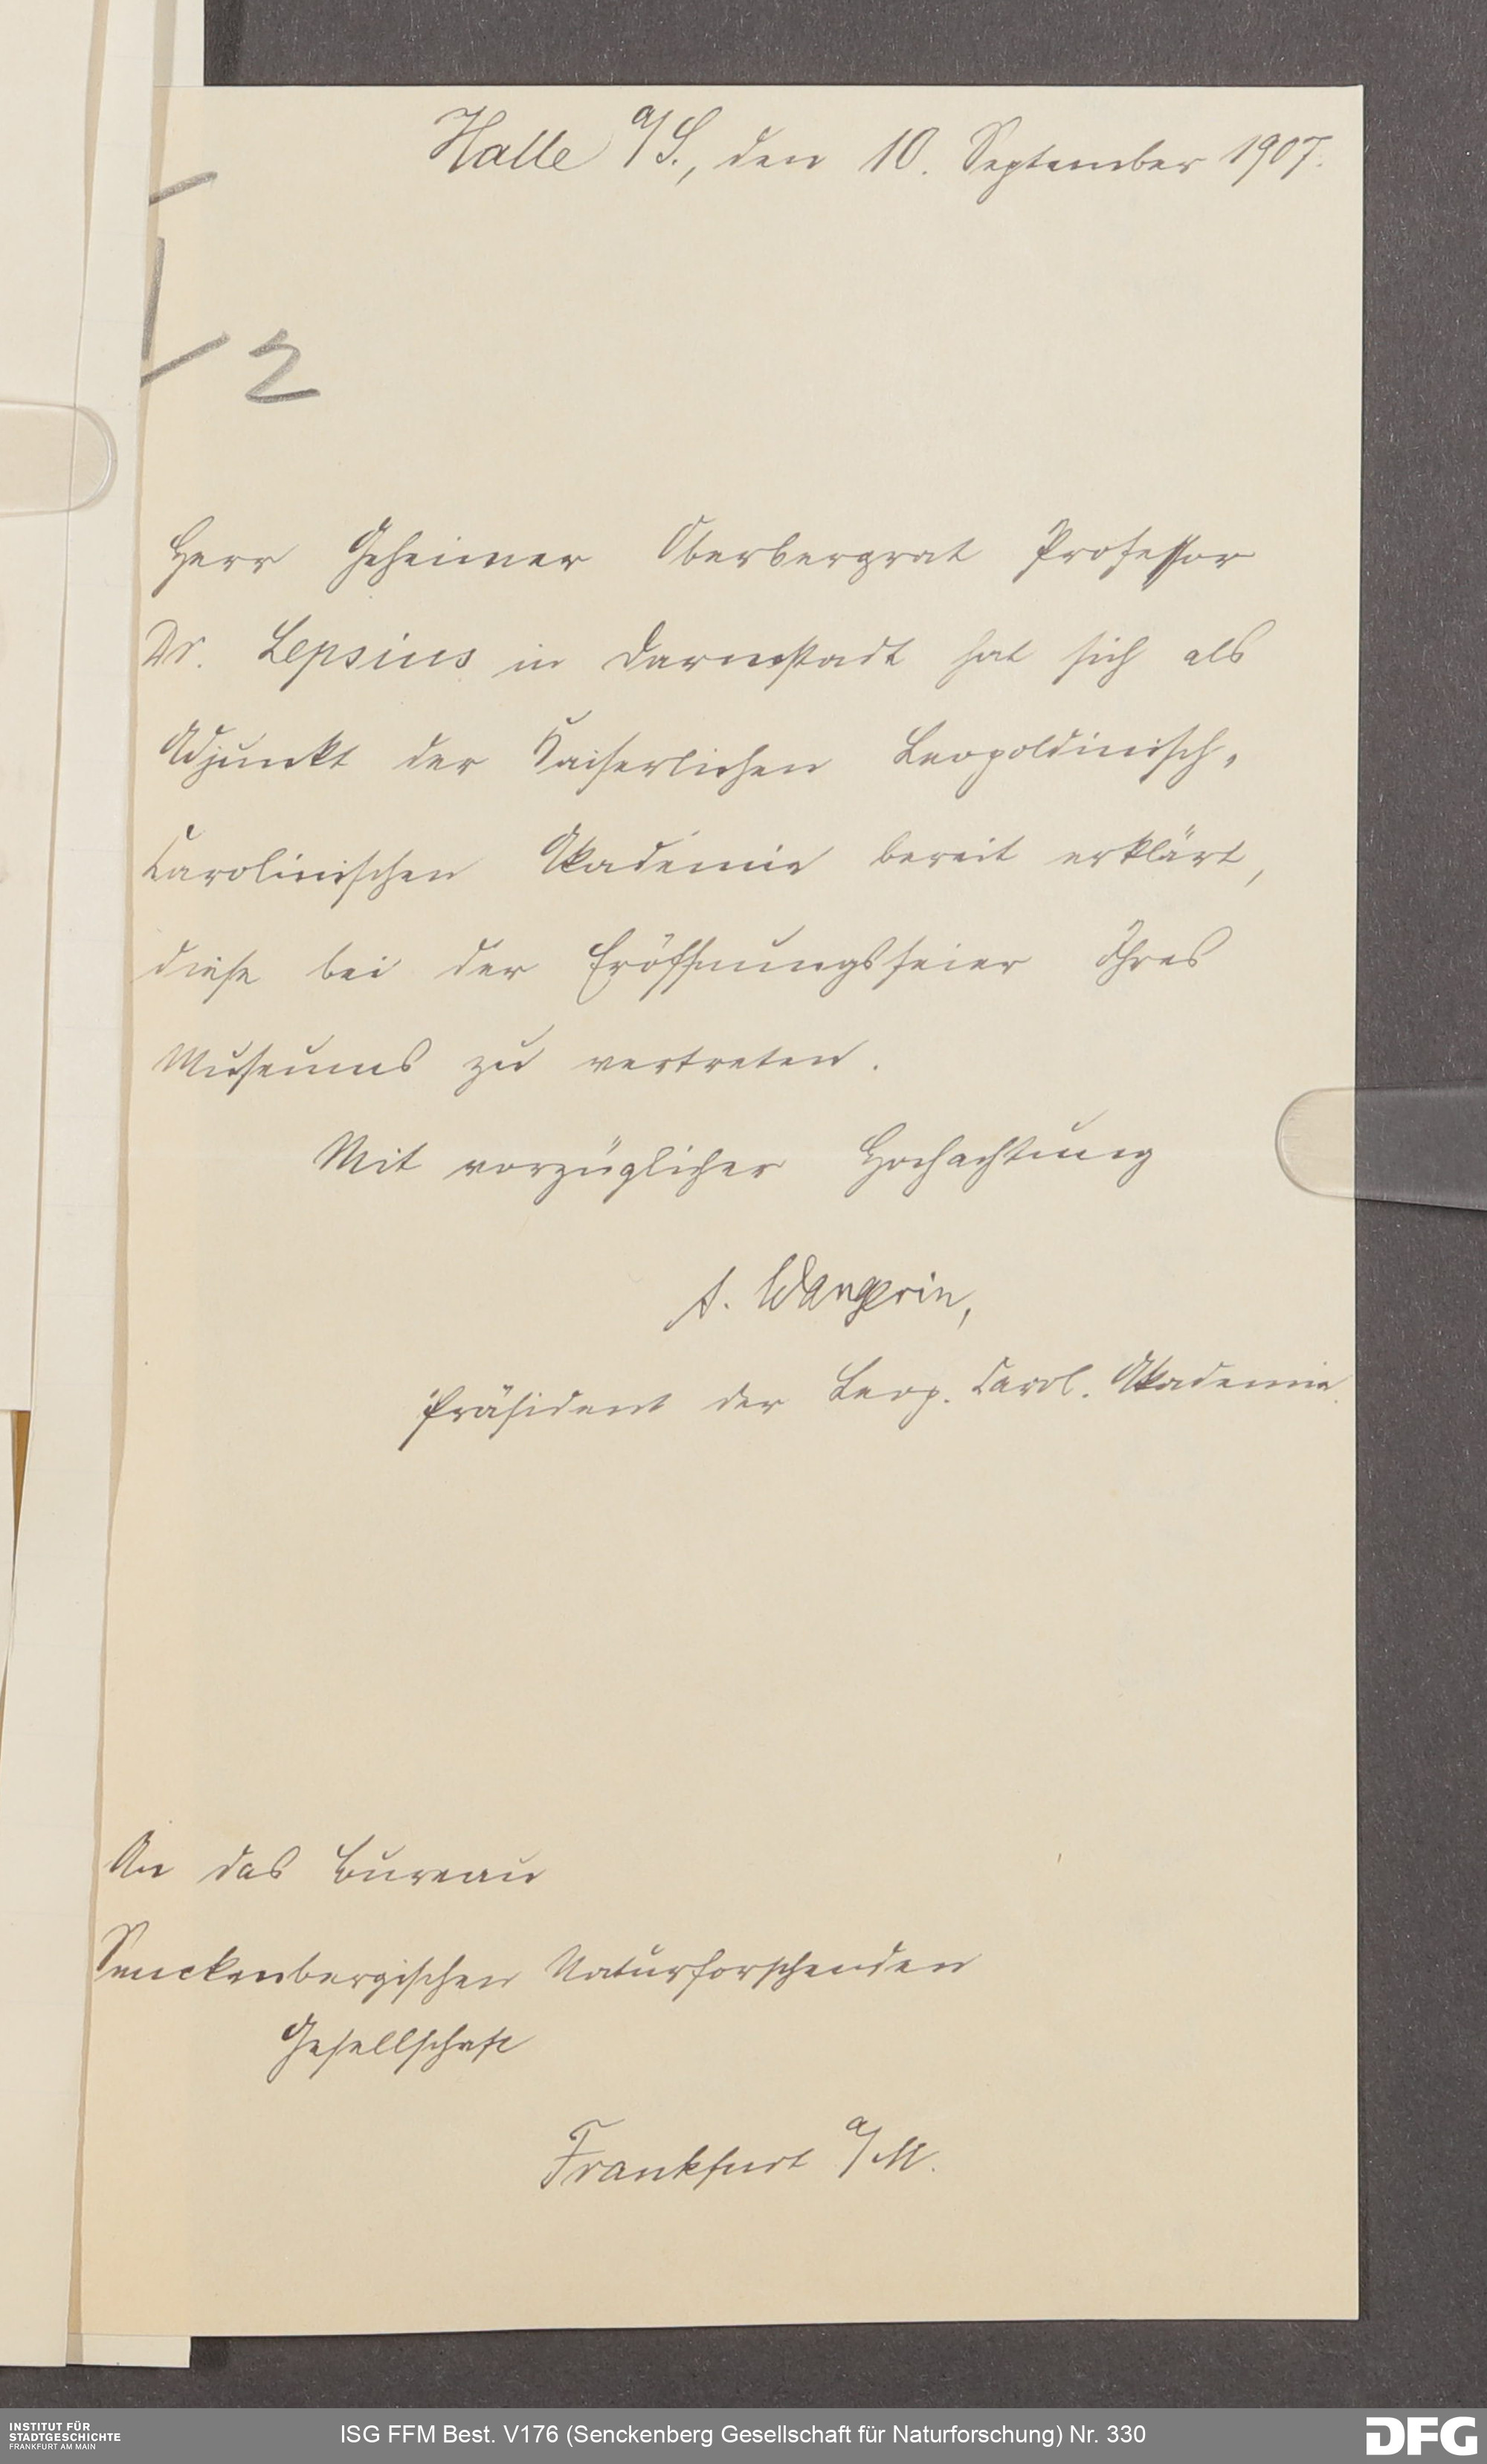 Halle a/S., den 10. September 1907.
2
Herr Geheimer Oberbergrat Professor
Dr. Lepsius in Darmstadt hat sich als
Adjunkt der Kaiserlichen Leopoldinisch-
Carolinischen Akademie bereit erklärt,
diese bei der Eröffnungsfeier Ihres
Museums zu vertreten.
Mit vorzüglicher Hochachtung
A. Wangerin,
Präsident der Leop. Carol. Akademie.
An das Bureau
Senckenbergischen Naturforschenden
Gesellschaft
Frankfurt a/M.
INSTITUT FÜR
STADTGESCHICHTE
FRANKFURT AM MAIN
ISG FFM Best. V176 (Senckenberg Gesellschaft für Naturforschung) Nr. 330
DFG